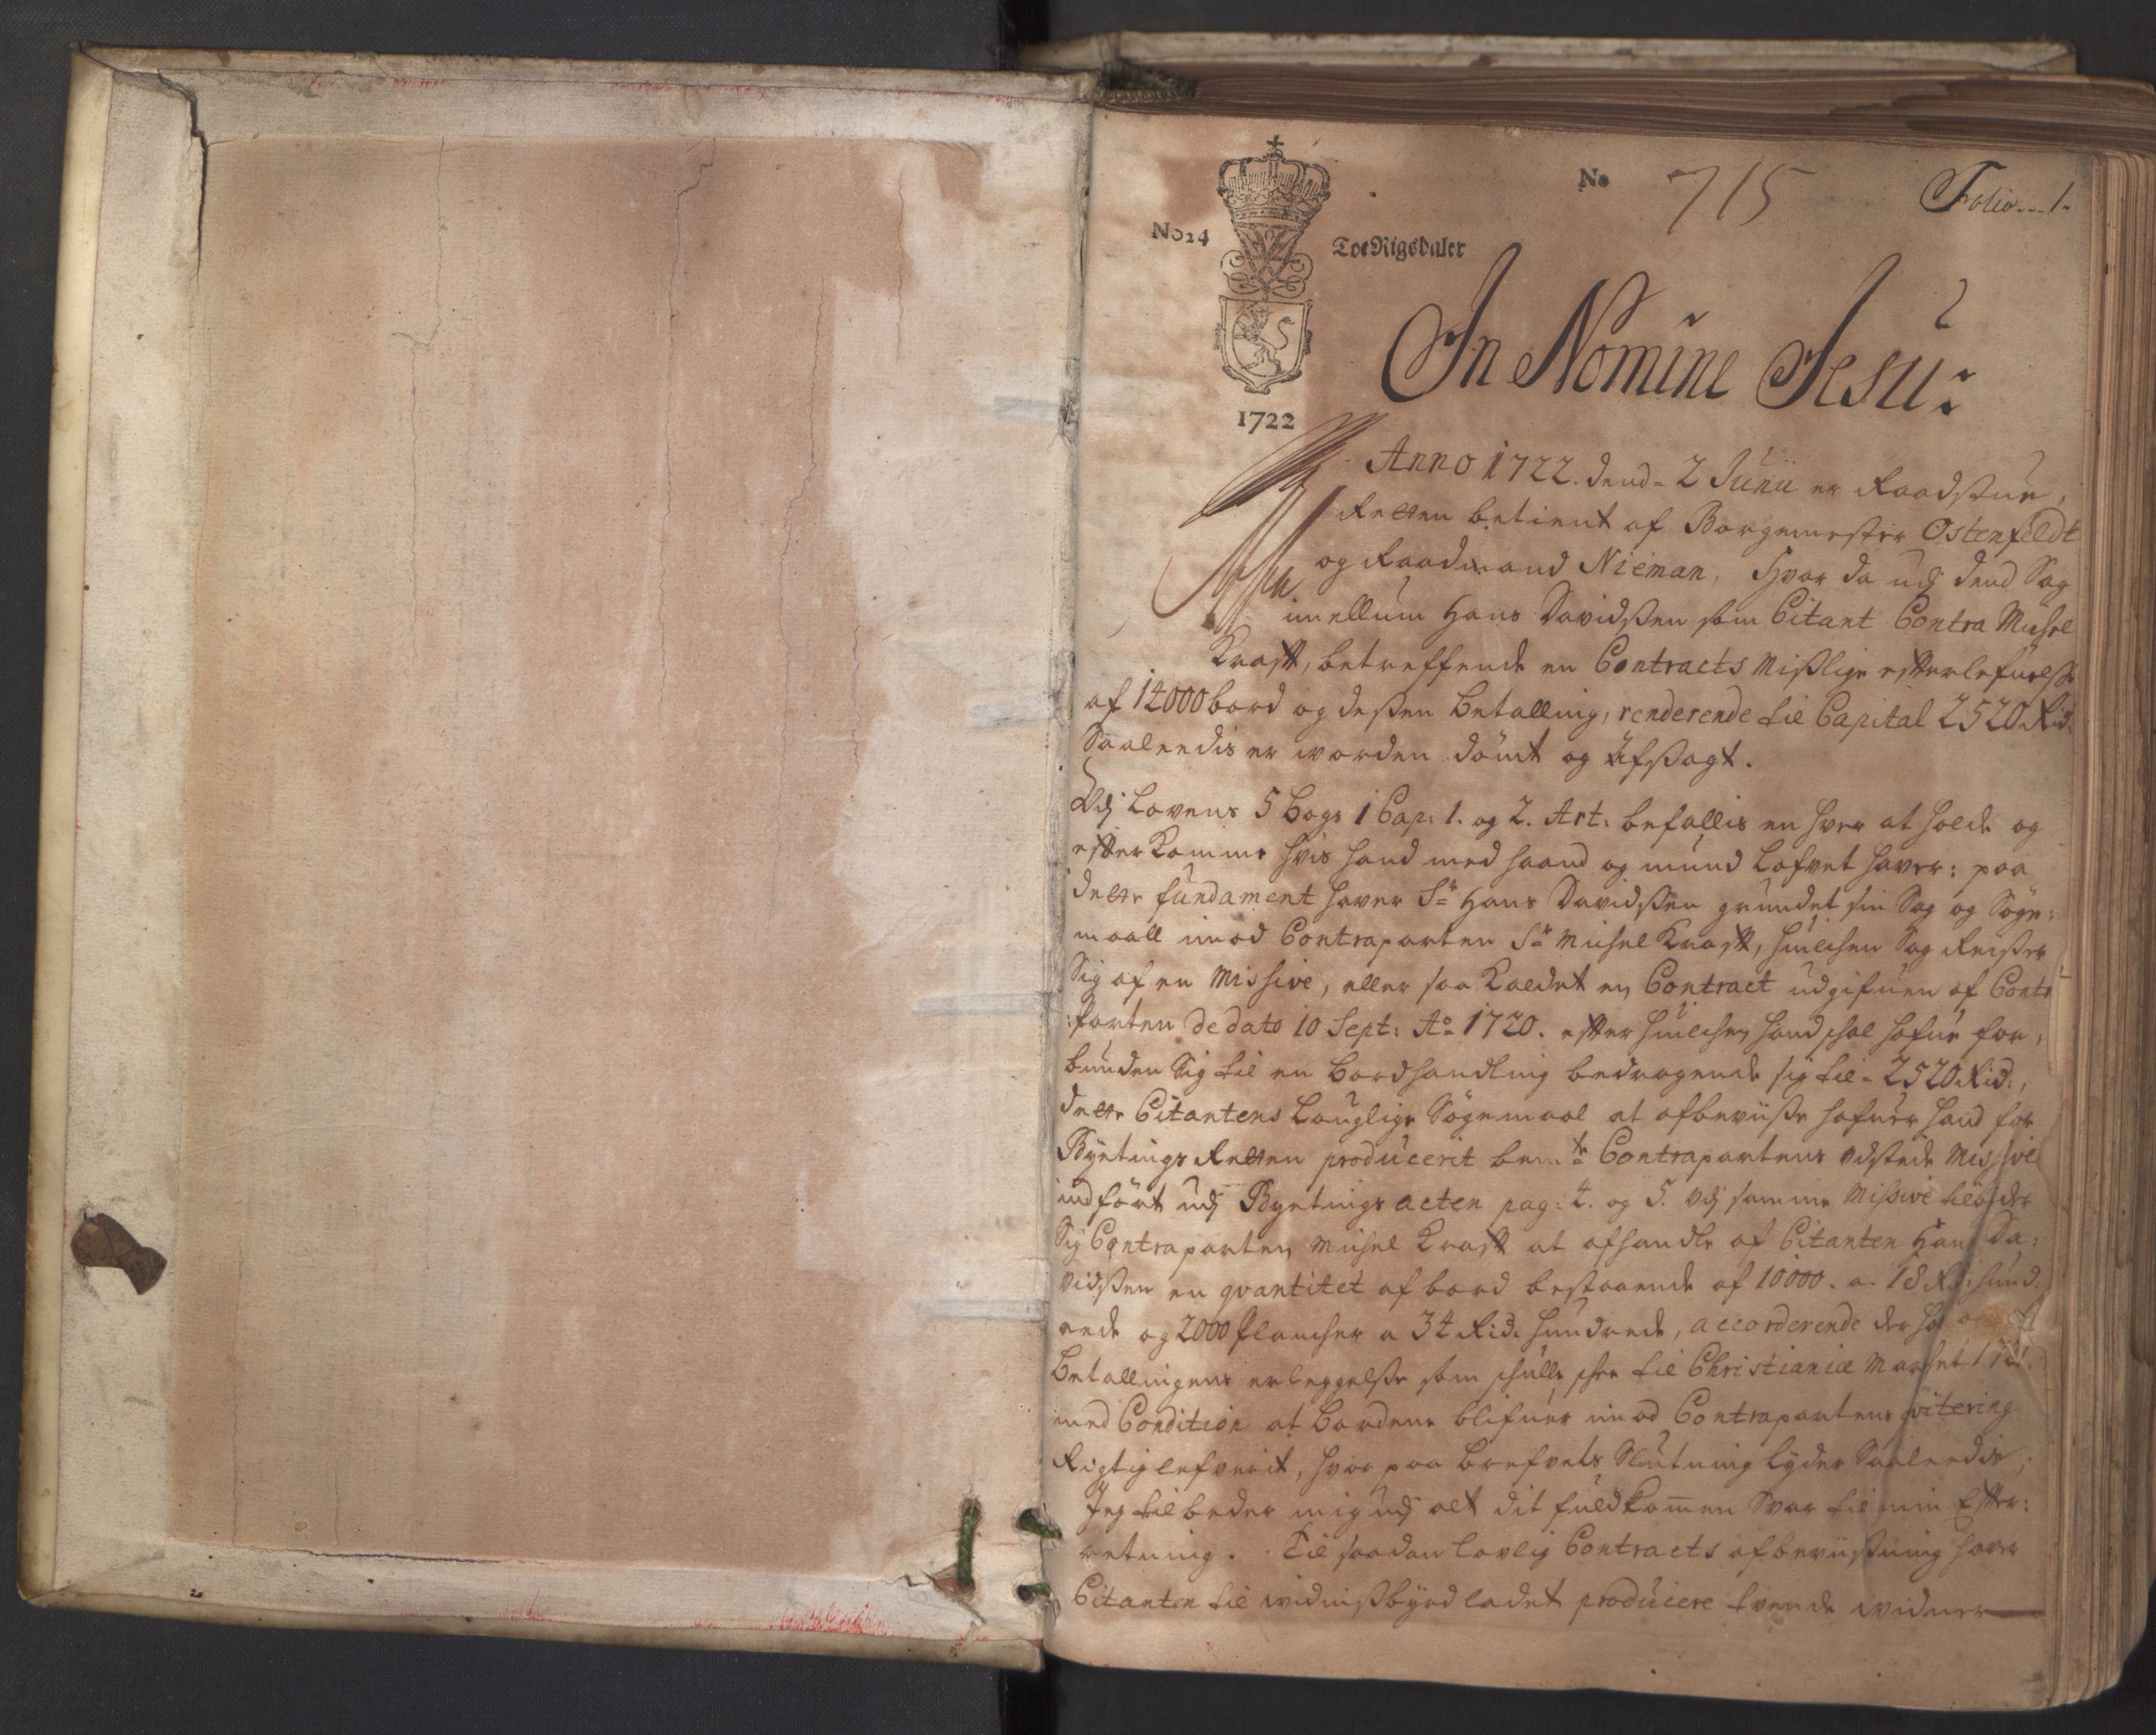 No 715
Folio...1.
No24
Toe Rigsdaler
1722
In Nomine Jesu:
Anno 1722. dend=2 Junii er Raadstue,
Retten betient af Borgemester Ostenfeldt
og Raadmand Nieman, Hvor da udj dend Sag
imellum Hans Davidsen som Citant Contra Michel
Krafft, betreffende en Contracts Misslige efterlefuelse
af 12000 bord og dessen betalling, renderende til Capital 2520 Rid.
Saaledis er worden dömt og afsagt.
Udj Lovens 5 bogs 1 Cap: 1. og 2. Art. befallis en hver at holde og
efterkomme hvis hand med haand og mund lofvet haver: paa
dette fundament haver Sr= Hans Davidsen grundet sin Sag og Søge:
maall imod Contraparten Sr= Michel Krafft, huilchen Sag Reiser
Sig af en Missive, eller saa kaldet en Contract udgifuen af Contr
:parten de dato 10 Sept: Ao= 1720. efter huilchen hand schal hafue for,
bunden Sig til en bordhandling bedragende sig til= 2520 Rid.,
dette Citantens Lauglige Søgemaal at afbeviisse hafuer hand for
Byetings Retten producerit bemte= Contrapartens udstede Missive
indfört udj Byetings acten pag: 4. og 5. Udj samme Missive tilbyder
Sig Contraparten Michel Krafft at afhandle af Citanten Hans Da:
vidsen en qvantitet af bord bestaaende af 10000. a. 18 Rd: hund:
rede og 2000 Plancher a 34 Rid. hundrede, accorderende der
betallingens erleggelse som schulle schee til Christianiæ Marchet
med Condition at bordene blifuer imod Contrapartens qvitering
Rigtig lefverit, hvor paa brefvets Slutning lyder Saaledis,
Jeg tilbeder mig udj alt dit fuldkommen Svar til min Efter:
retning. Til saadan lovlig Contracts afbeviisning haver
Citanten til widnissbyrd ladet producere tvende widner